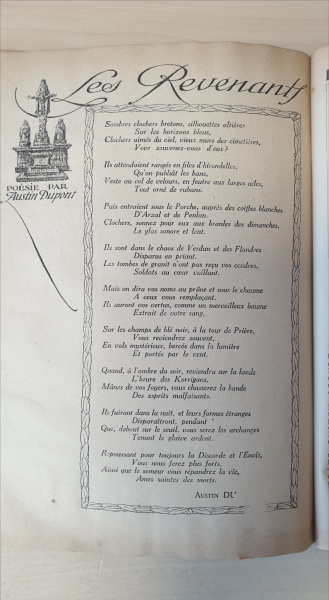 Les Revenants
POÉSIE PAR
Austin Dupont
Sombres clochers bretons, silhouettes altières
Sur les horizons bleus,
Clochers aimés du ciel, vieux murs des cimetières,
Vous souvenez-vous d'eux ?
Ils attendaient rangés en files d'hirondelles,
Qu'on publiât les bans,
Veste au col de velours, en feutre aux larges ailes,
Tout orné de rubans.
Puis entraient sous le Porche, auprès des coiffes blanches
D'Arzal et de Penlan.
Clochers, sonnez pour eux aux branles des dimanches,
Le glas sonore et lent.
Ils sont dans le chaos de Verdun et des Flandres
Disparus en priant.
Les tombes de granit n'ont pas reçu vos cendres,
Soldats au cœur vaillant.
Mais on dira vos noms au prône et sous le chaume
A ceux vous remplaçant.
Ils auront vos vertus, comme un merveilleux baume
Extrait de votre sang.
Sur les champs de blé noir, à la tour de Prière,
Vous reviendrez souvent,
En vols mystérieux, bercés dans la lumière
Et portés par le vent.
Quand, à l'ombre du soir, reviendra sur la lande
L'heure des Korrigans,
Mânes de vos foyers, vous chasserez la bande
Des esprits malfaisants.
Ils fuiront dans la nuit, et leurs formes étranges
Disparaîtront, pendant
Que, debout sur le seuil, vous serez les archanges
Tenant le glaive ardent.
Repoussant pour toujours la Discorde et l'Envie,
Vous nous ferez plus forts,
Ainsi que le semeur vous répandrez la vie,
Ames saintes des morts.
AUSTIN DU